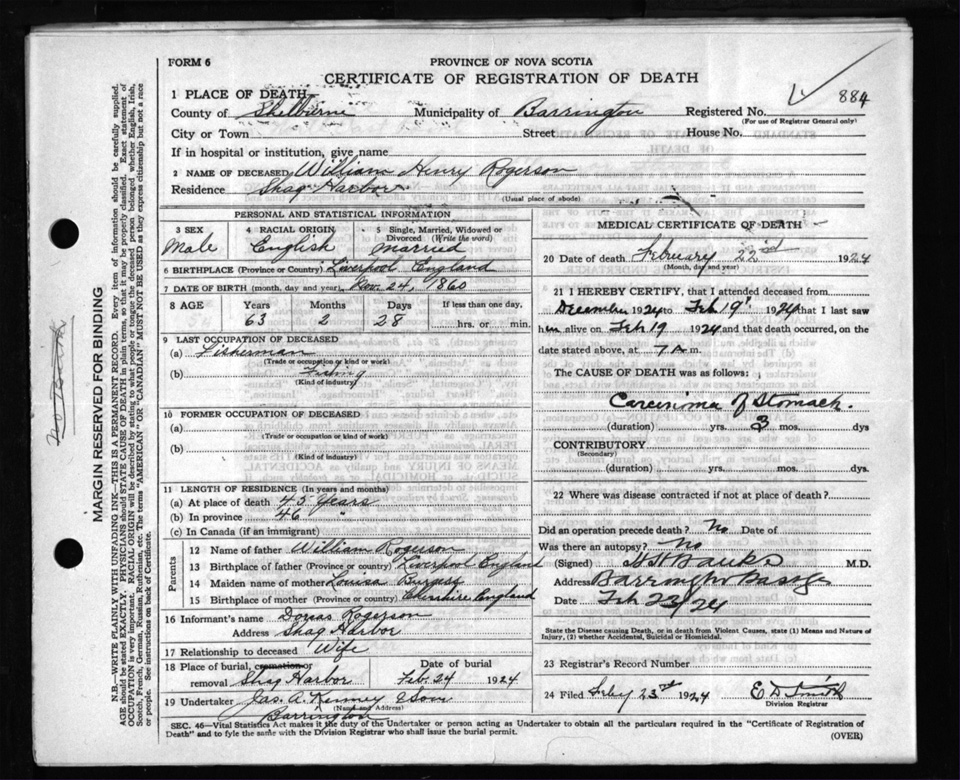 FORM 6
PROVINCE OF NOVA SCOTIA
CERTIFICATE OF REGISTRATION OF DEATH
884
1 PLACE OF DEATH
County of Shelburne Municipality of Barrington Registered No.
(For use of Registrar General only)
City or Town Street House No.
If in hospital or institution, give name
2 NAME OF DECEASED William Henry Rogerson
Residence Shag Harbor
(Usual place of abode)
PERSONAL AND STATISTICAL INFORMATION
3 SEX 4 RACIAL ORIGIN 5 Single, Married, Widowed or Divorced (Write the word)
Male English Married
6 BIRTHPLACE (Province or Country) Liverpool England
7 DATE OF BIRTH (month, day and year) Nov. 24, 1860
8 AGE Years Months Days If less than one day,
63 2 28 hrs. or min.
9 LAST OCCUPATION OF DECEASED
(a) Fisherman
(Trade or occupation or kind of work)
(b) Fishing
(Kind of industry)
10 FORMER OCCUPATION OF DECEASED
(a)
(Trade or occupation or kind of work)
(b)
(Kind of industry)
11 LENGTH OF RESIDENCE (In years and months)
(a) At place of death 45 Years
(b) In province 46 "
(c) In Canada (if an immigrant)
Parents
12 Name of father William Rogerson
13 Birthplace of father (Province or country) Liverpool England
14 Maiden name of mother Louisa Burgess
15 Birthplace of mother (Province or country) Cheshire England
16 Informant's name Dorcas Rogerson
Address Shag Harbor
17 Relationship to deceased Wife
18 Place of burial, cremation or removal Shag Harbor Date of burial Feb. 24 1924
19 Undertaker Jas. A. Kenney & Son
(Name and Address)
Barrington
MEDICAL CERTIFICATE OF DEATH
20 Date of death February 22nd 1924
(Month, day and year)
21 I HEREBY CERTIFY, that I attended deceased from
December 1924 to Feb 19" 1924 that I last saw
him alive on Feb 19 1924 and that death occurred, on the
date stated above, at 7 A m.
The CAUSE OF DEATH was as follows:
Carcinima of Stomach.
(duration) yrs. 3 mos. dys
CONTRIBUTORY
(Secondary)
(duration) yrs. mos. dys.
22 Where was disease contracted if not at place of death?
Did an operation precede death? No Date of
Was there an autopsy? No
(Signed) H H Banks M.D.
Address Barrington Passage
Date Feb 23/24
State the Disease causing Death, or in death from Violent Causes, state (1) Means and Nature of Injury, (2) whether Accidental, Suicidal or Homicidal.
23 Registrar's Record Number
24 Filed Feby 23rd 1924 E D Smith
Division Registrar
SEC. 46—Vital Statistics Act makes it the duty of the Undertaker or person acting as Undertaker to obtain all the particulars required in the "Certificate of Registration of
Death" and to fyle the same with the Division Registrar who shall issue the burial permit.
(OVER)
MARGIN RESERVED FOR BINDING
N.B.—WRITE PLAINLY WITH UNFADING INK—THIS IS A PERMANENT RECORD. Every item of information should be carefully supplied.
AGE should be stated EXACTLY. PHYSICIANS should state CAUSE OF DEATH in plain terms, so that it may be properly classified. Exact statement of
OCCUPATION is very important. RACIAL ORIGIN will be described by stating to what people or tongue the deceased person belonged whether English, Irish,
Scotch, French, German, Russian, Ruthenian, etc. The terms "AMERICAN" OR "CANADIAN" MUST NOT BE USED as they express citizenship but not a race
or people. See instructions on back of Certificate.